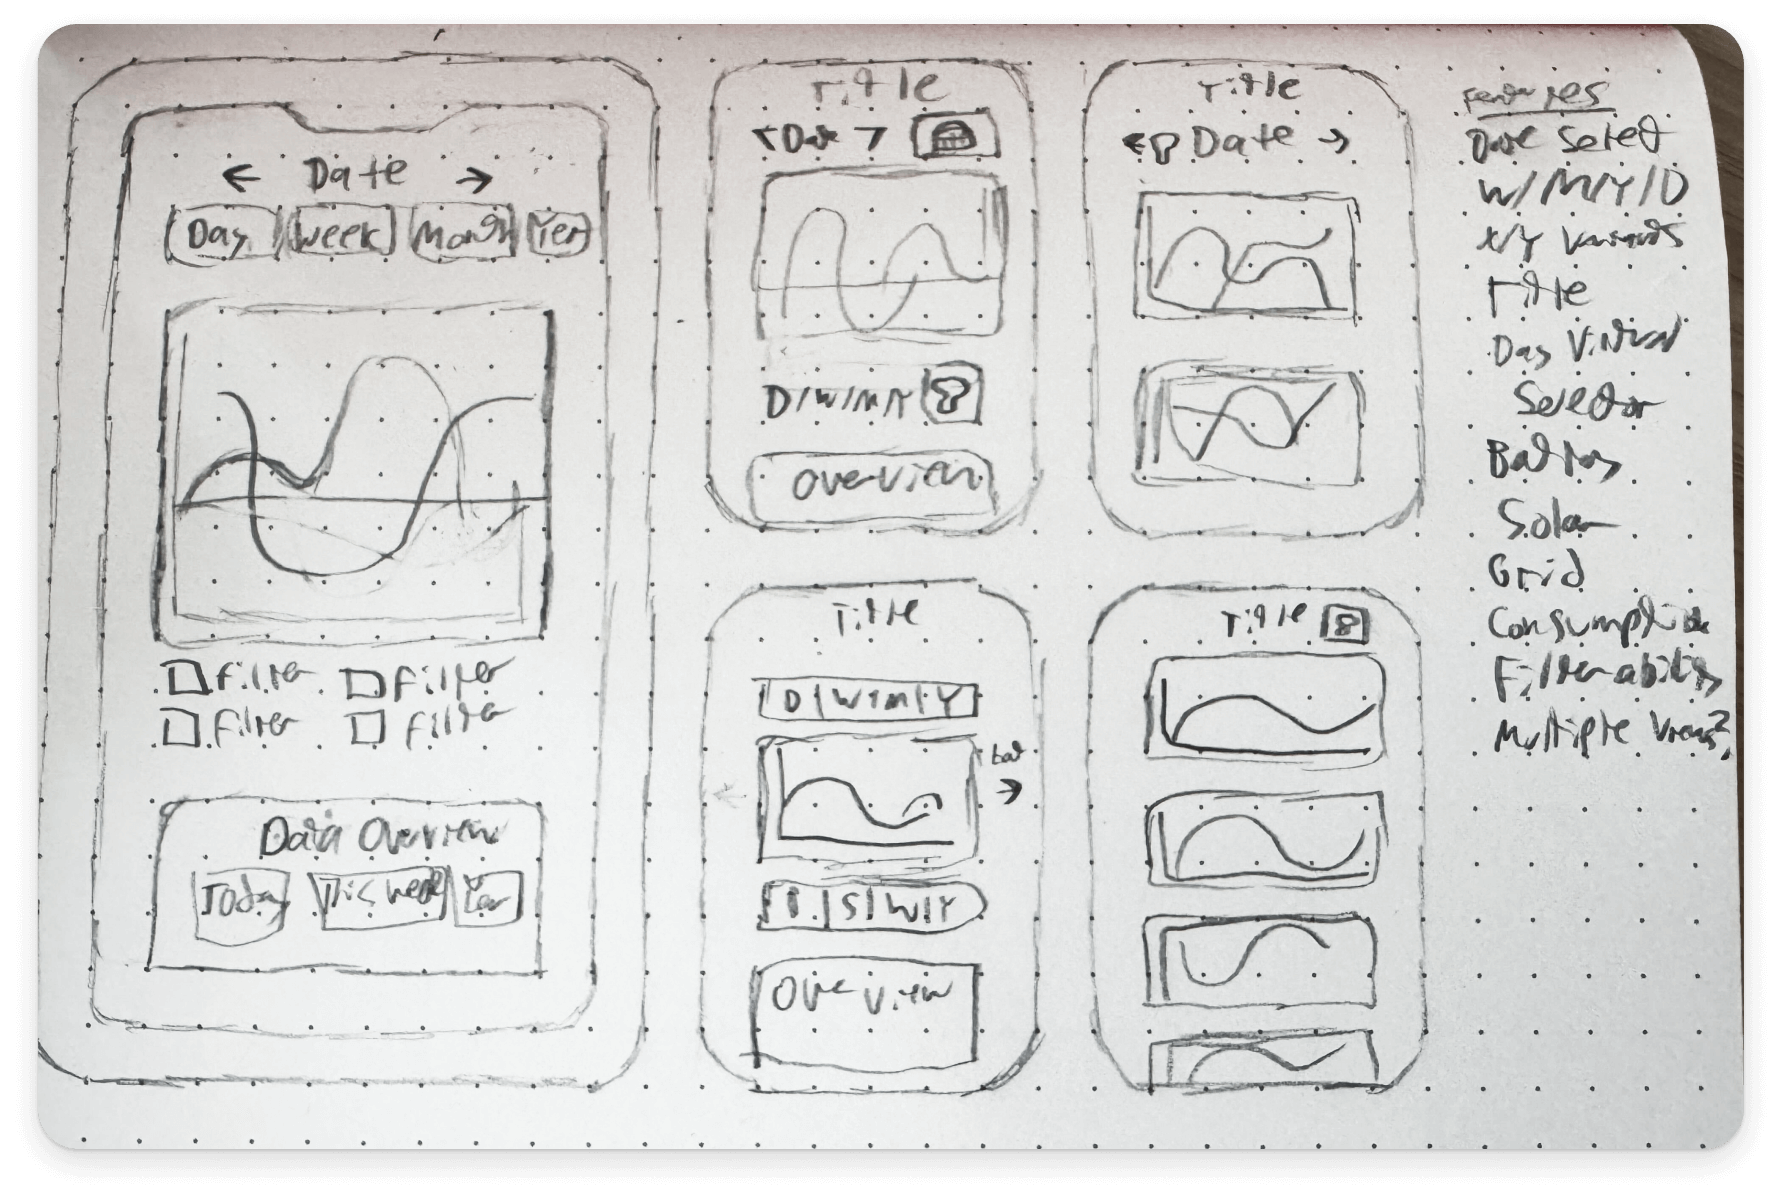 ← Date →
Day Week Month Yer
Filter Filter
Filter Filter
Data Overview
Today This week Year
Title
< Date >
D/W/M/Y
Overview
Title
← Date →
Title
D|W|M|Y
Bat
→
S|W|Y
Overview
Title
Features
Date Select
W/M/Y/D
X/Y
Title
Day
Selector
Battery
Solar
Grid
Consumption
Filterability
Multiple Views?